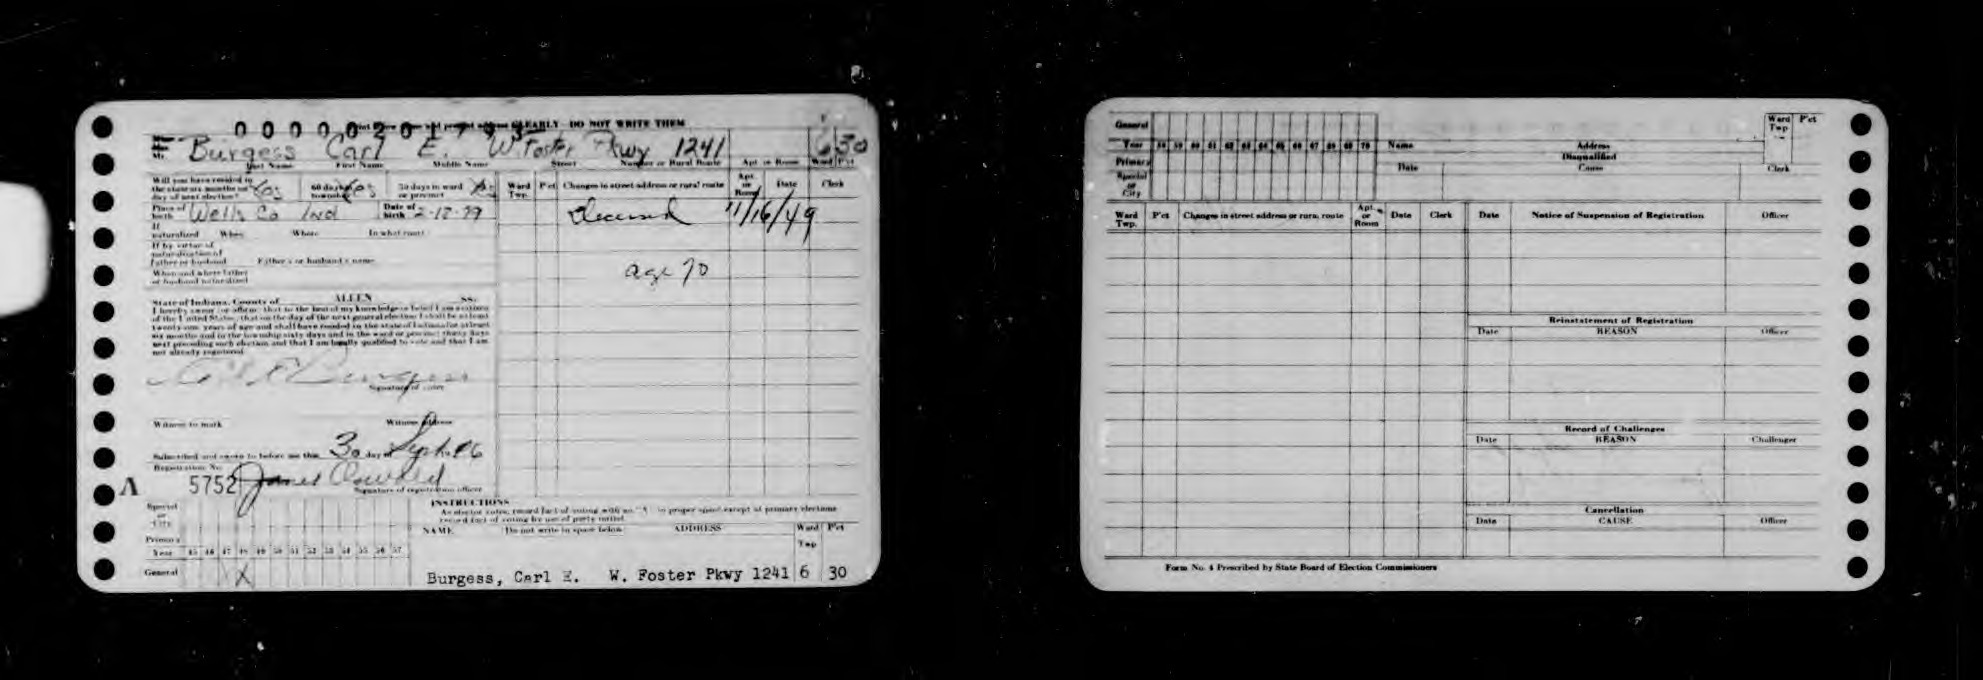 0 0 0 0 0 2 0 1 7 9 3
CLEARLY DO NOT WRITE THEM
Mr. Burgess Carl E. W Foster Pkwy 1241 6 30
Last Name First Name Middle Name Street Number or Rural Route Apt or Room Ward P'ct
Will you have resided in
the state six months on Yes 60 days in township Yes 30 days in ward or precinct Yes
day of next election?
Place of birth Wells Co Ind Date of birth 2-12-79
If naturalized When Where In what court
If by virtue of
naturalization of
Father or husband Father's or husband's name
When and where father
or husband naturalized
State of Indiana, County of ALLEN SS:
I hereby swear (or affirm) that to the best of my knowledge or belief I am a citizen
of the United States, that on the day of the next general election I shall be at least
twenty-one years of age and shall have resided in the state of Indiana for at least
six months and in the township sixty days and in the ward or precinct thirty days
next preceding such election and that I am legally qualified to vote and that I am
not already registered
Burgess
Signature of voter
Witness to mark Witness address
Subscribed and sworn to before me this 30 day of Sept 46
Registration No.
A 5752 Janet
Signature of registration officer
Special
or
City
Primary
Year 45 46 47 48 49 50 51 52 53 54 55 56 57
General X
Ward Twp. P'ct Changes in street address or rural route Apt. or Room Date Clerk
Deceased 11/16/49
age 70
INSTRUCTIONS
As elector votes, record fact of voting with an "X" in proper space except at primary elections
record fact of voting by use of party initial
NAME Do not write in space below ADDRESS Ward Twp P'ct
Burgess, Carl E. W. Foster Pkwy 1241 6 30
General
Year 58 59 60 61 62 63 64 65 66 67 68 69 70 Name Address Ward Twp P'ct
Primary Disqualified
Special or City Date Cause Clerk
Ward Twp. P'ct Changes in street address or rural route Apt. or Room Date Clerk
Date Notice of Suspension of Registration Officer
Reinstatement of Registration
Date REASON Officer
Record of Challenges
Date REASON Challenger
Cancellation
Date CAUSE Officer
Form No. 4 Prescribed by State Board of Election Commissioners